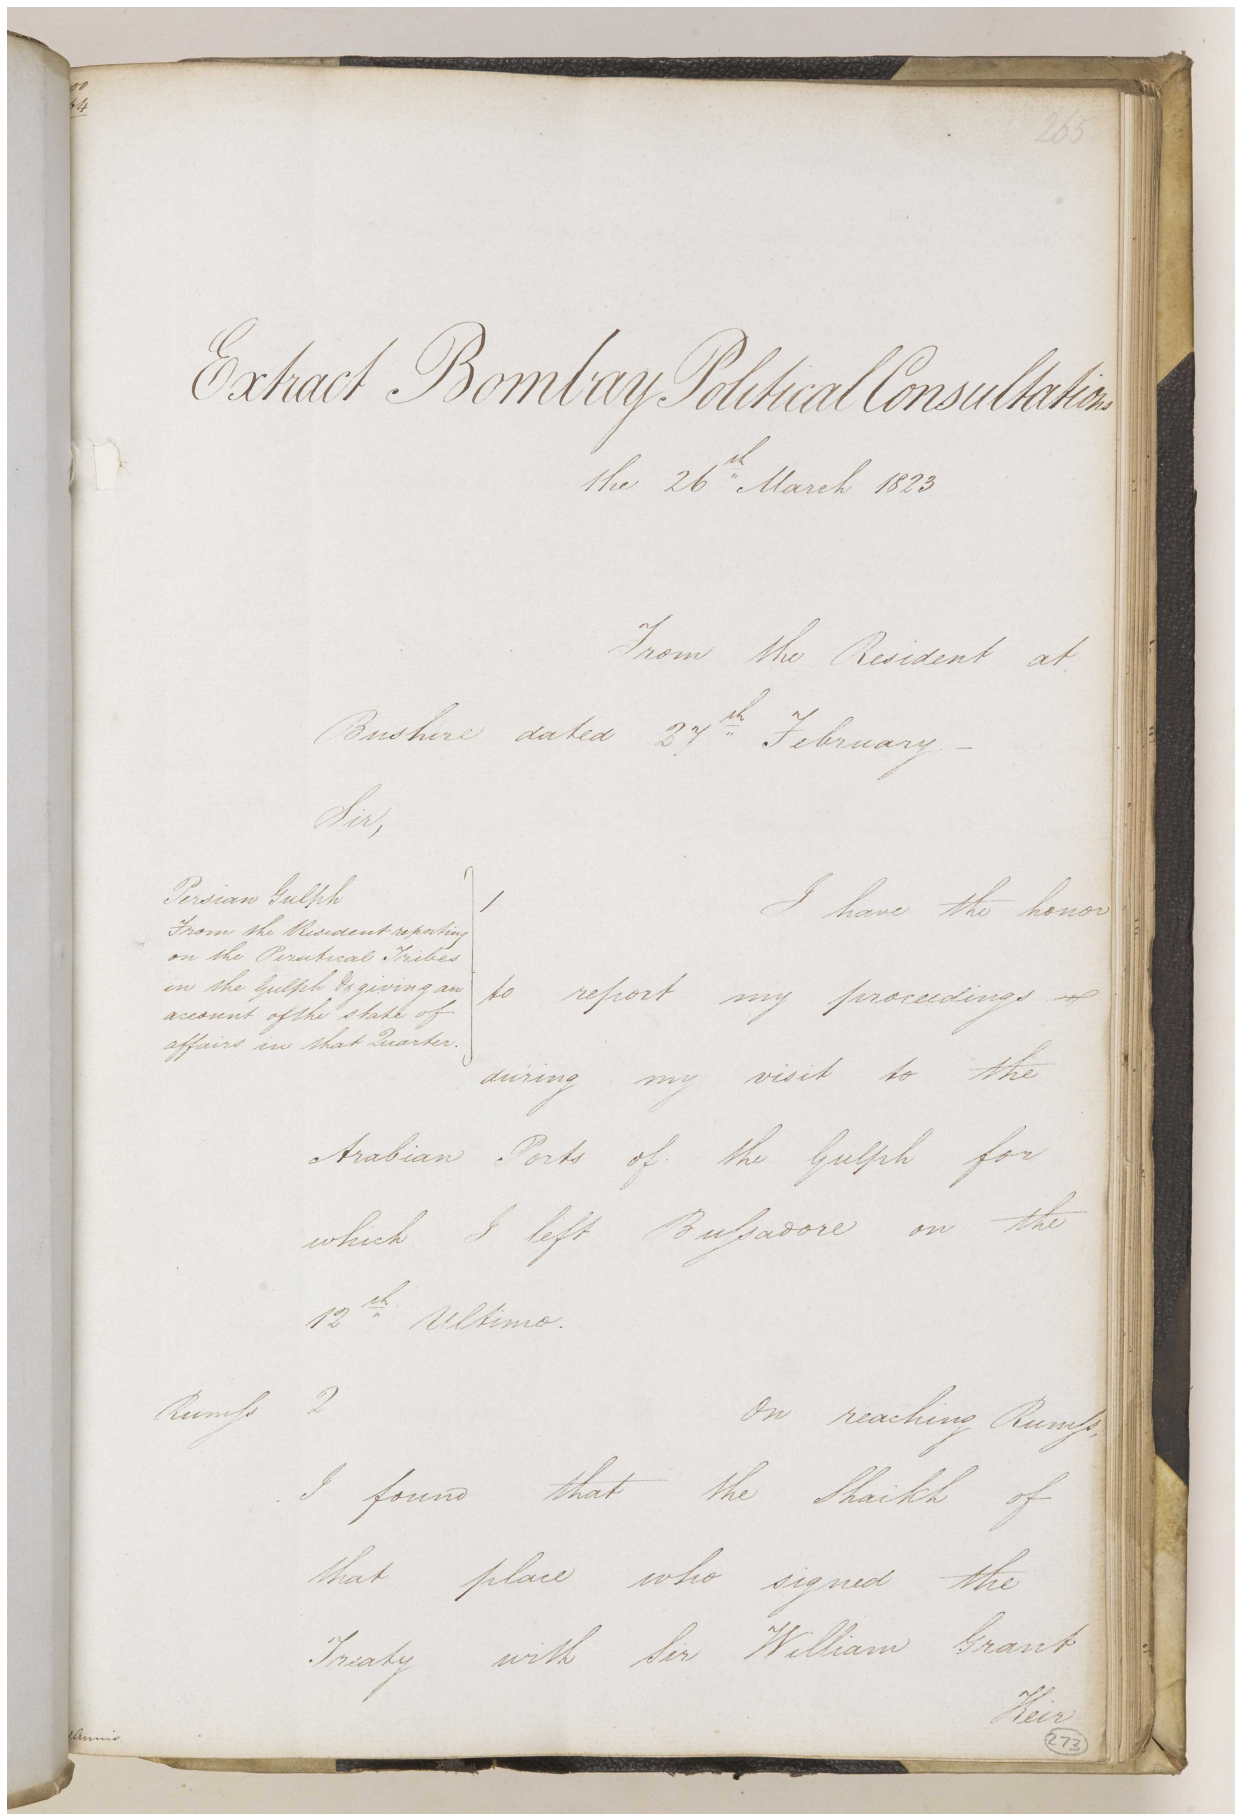 265
Extract Bombay Political Consultations
the 26th March 1823
From the Resident at
Bushire dated 27th February. –
Sir,
Persian Gulph
From the Resident reporting
on the Piratical Tribes
in the Gulph & giving an
account of the state of
affairs in that Quarter.
1 I have the honor
to report my proceedings
during my visit to the
Arabian Ports of the Gulph for
which I left Bussadore on the
12th Ultimo.
Rumss 2 On reaching Rumss,
I found that the Shaikh of
that place who signed the
Treaty with Sir William Grant
Keir
273